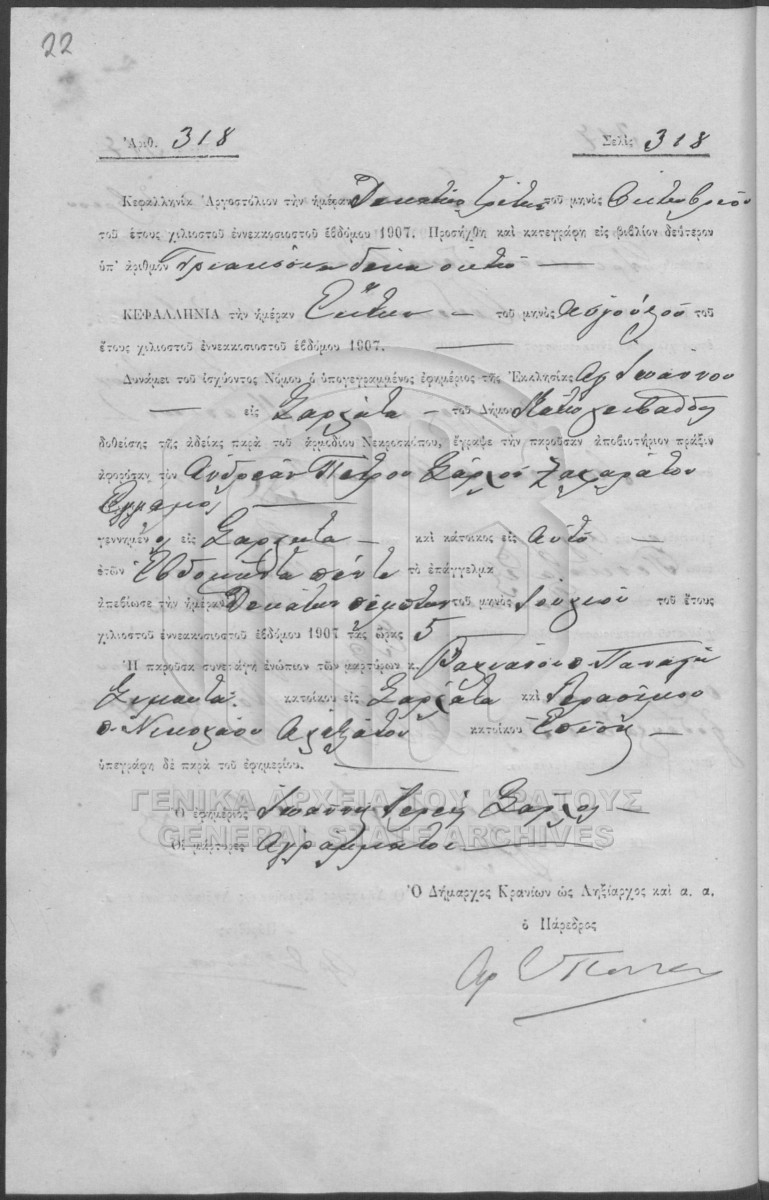 22
Ἀριθ. 318 Σελὶς 318
Κεφαλληνία Ἀργοστόλιον τὴν ἡμέραν Δεκάτην τρίτην τοῦ μηνὸς Ὀκτωβρίου
τοῦ ἔτους χιλιοστοῦ ἐννεακοσιοστοῦ ἑβδόμου 1907. Προσήχθη καὶ κατεγράφη εἰς βιβλίον δεύτερον
ὑπ' ἀριθμὸν Τριακόσια δέκα ὀκτώ —
ΚΕΦΑΛΛΗΝΙΑ τὴν ἡμέραν Ἕκτην — τοῦ μηνὸς Αὐγούστου τοῦ
ἔτους χιλιοστοῦ ἐννεακοσιοστοῦ ἑβδόμου 1907. —
Δυνάμει τοῦ ἰσχύοντος Νόμου ὁ ὑπογεγραμμένος ἐφημέριος τῆς Ἐκκλησίας Ἁγ Ἰωάννου
— εἰς Σαρλάτα — τοῦ Δήμου
δοθείσης τῆς ἀδείας παρὰ τοῦ ἁρμοδίου Νεκροσκόπου, ἔγραψε τὴν παροῦσαν ἀποβιωτήριον πρᾶξιν
ἀφορῶσαν τὸν Ἀνδρέαν Πέτρου Ζαχαράτον
Ἔγγαμος —
γεννημέν ον εἰς Σαρλάτα — καὶ κάτοικος εἰς Αὐτό —
ἐτῶν Ἑβδομήντα πέντε τὸ ἐπάγγελμα
ἀπεβίωσε τὴν ἡμέραν Δεκάτην πέμπτην τοῦ μηνὸς Ἰουλίου τοῦ ἔτους
χιλιοστοῦ ἐννεακοσιοστοῦ ἑβδόμου 1907 τὰς ὥρας 5
Ἡ παροῦσα συνετάγη ἐνώπιον τῶν μαρτύρων κ. Παναγῆ
κατοίκου εἰς Σαρλάτα καὶ Γερασίμου
Νικολάου κατοίκου Ἐπίσης —
ὑπεγράφη δὲ παρὰ τοῦ ἐφημερίου. —
ΓΕΝΙΚΑ ΑΡΧΕΙΑ ΤΟΥ ΚΡΑΤΟΥΣ
Ὁ ἐφημέριος Ἰωάννης Ἱερεὺς Σάρλος —
GENERAL STATE ARCHIVES
Οἱ μάρτυρες Ἀγράμματοι —
Ὁ Δήμαρχος Κρανίων ὡς Ληξίαρχος καὶ α. α.
ὁ Πάρεδρος